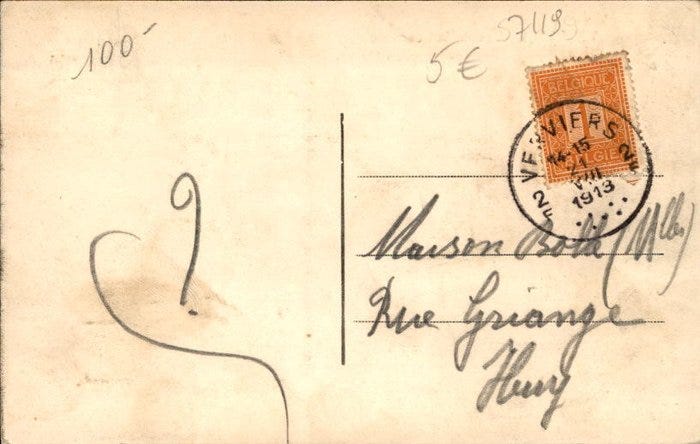 100-
5 €
57119
BELGIQUE
1
BELGIË
VERVIERS
14-15
21
VIII
1913
2F 2F
?
Maison Both (Mlles)
Rue Griange
Huy